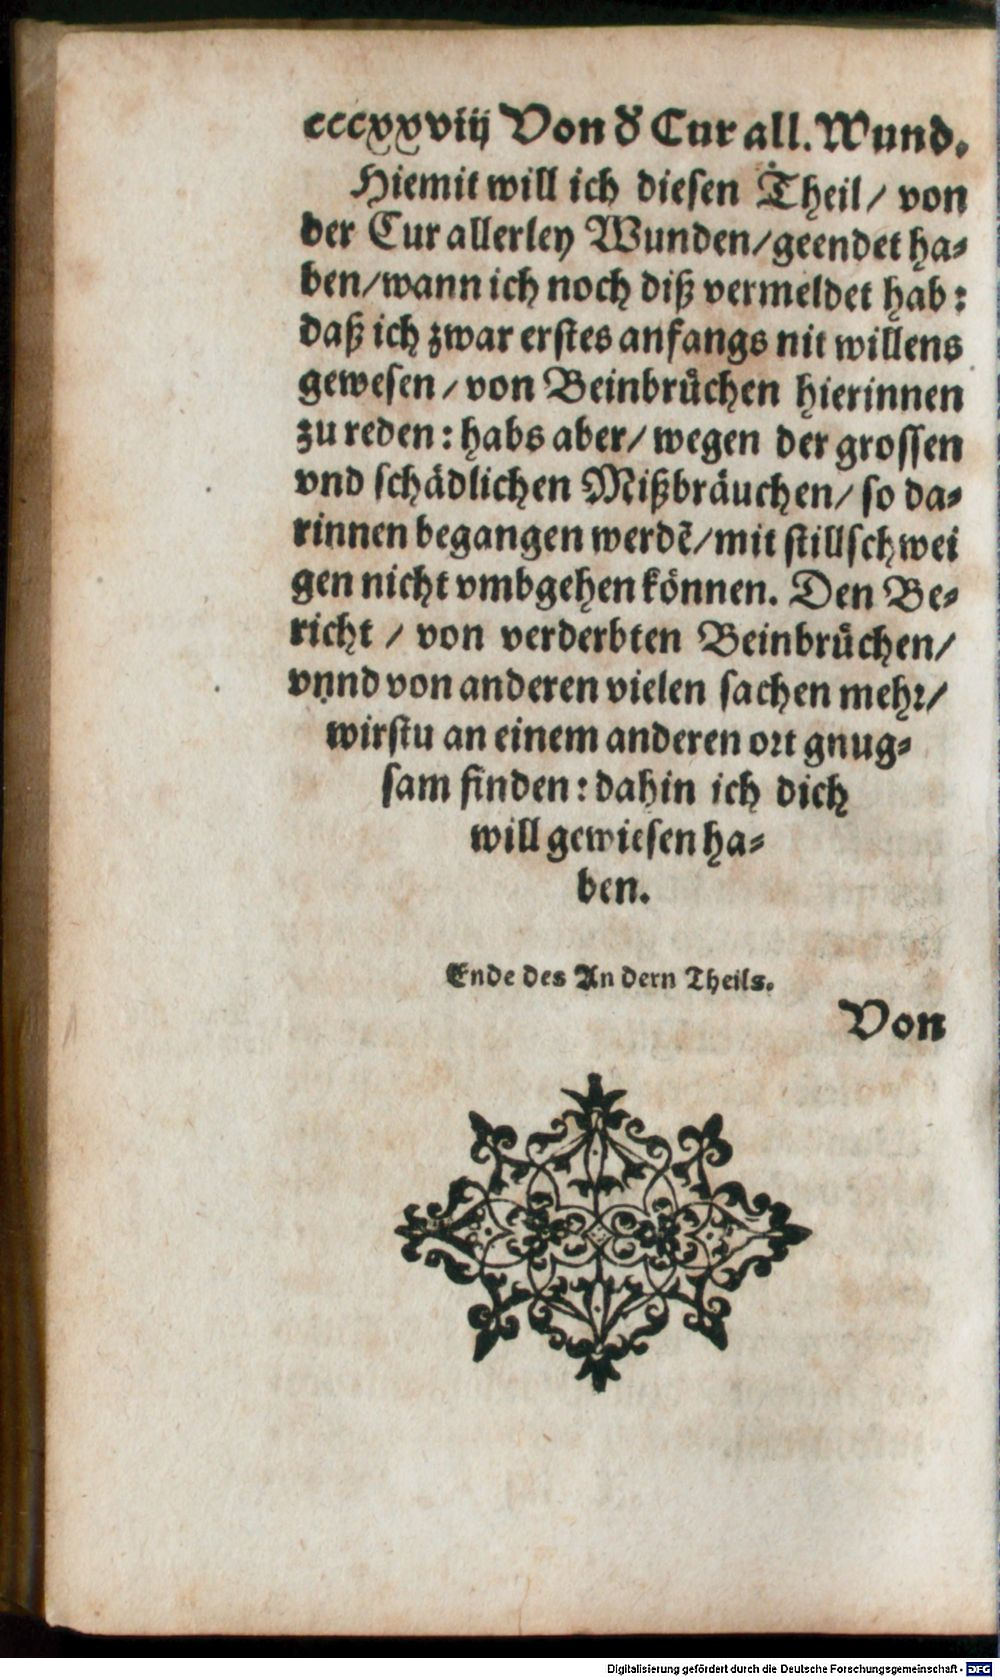 cccxxviij Von d̕ Cur all. Wund.
Hiemit will ich diesen Theil / von
der Cur allerley Wunden / geendet ha-
ben / wann ich noch diß vermeldet hab :
daß ich zwar erstes anfangs nit willens
gewesen / von Beinbrůchen hierinnen
zu reden : habs aber / wegen der grossen
vnd schädlichen Mißbräuchen / so da-
rinnen begangen werdē / mit stillschwei
gen nicht vmbgehen können. Den Be-
richt / von verderbten Beinbrůchen /
vnnd von anderen vielen sachen mehr /
wirstu an einem anderen ort gnug-
sam finden : dahin ich dich
will gewiesen ha-
ben.
Ende des Andern Theils.
Von
Digitalisierung gefördert durch die Deutsche Forschungsgemeinschaft - DFG